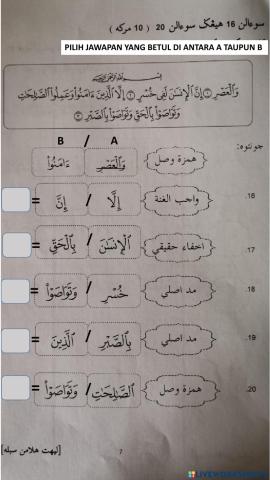 سوءالن 16 هيڠݢ سوءالن 20 ( 10 مركه )
PILIH JAWAPAN YANG BETUL DI ANTARA A TAUPUN B
بِسْمِ اللَّهِ الرَّحْمَٰنِ الرَّحِيمِ
وَٱلْعَصْرِ ۝١ إِنَّ ٱلْإِنسَٰنَ لَفِى خُسْرٍ ۝٢ إِلَّا ٱلَّذِينَ ءَامَنُوا۟ وَعَمِلُوا۟ ٱلصَّٰلِحَٰتِ
وَتَوَاصَوْا۟ بِٱلْحَقِّ وَتَوَاصَوْا۟ بِٱلصَّبْرِ ۝٣
B / A
چونتوه:
همزة وصل وَٱلْعَصْرِ ءَامَنُوا۟
16. واجب الغنة إِلَّا / إِنَّ =
17. اخفاء حقيقي ٱلْإِنسَٰنَ / بِٱلْحَقِّ =
18. مد اصلي خُسْرٍ / وَتَوَاصَوْا۟ =
19. مد اصلي بِٱلصَّبْرِ / ٱلَّذِينَ =
20. همزة وصل ٱلصَّٰلِحَٰتِ / وَتَوَاصَوْا۟ =
7
[ليهت هلامن سبله]
LIVEWORKSHEETS